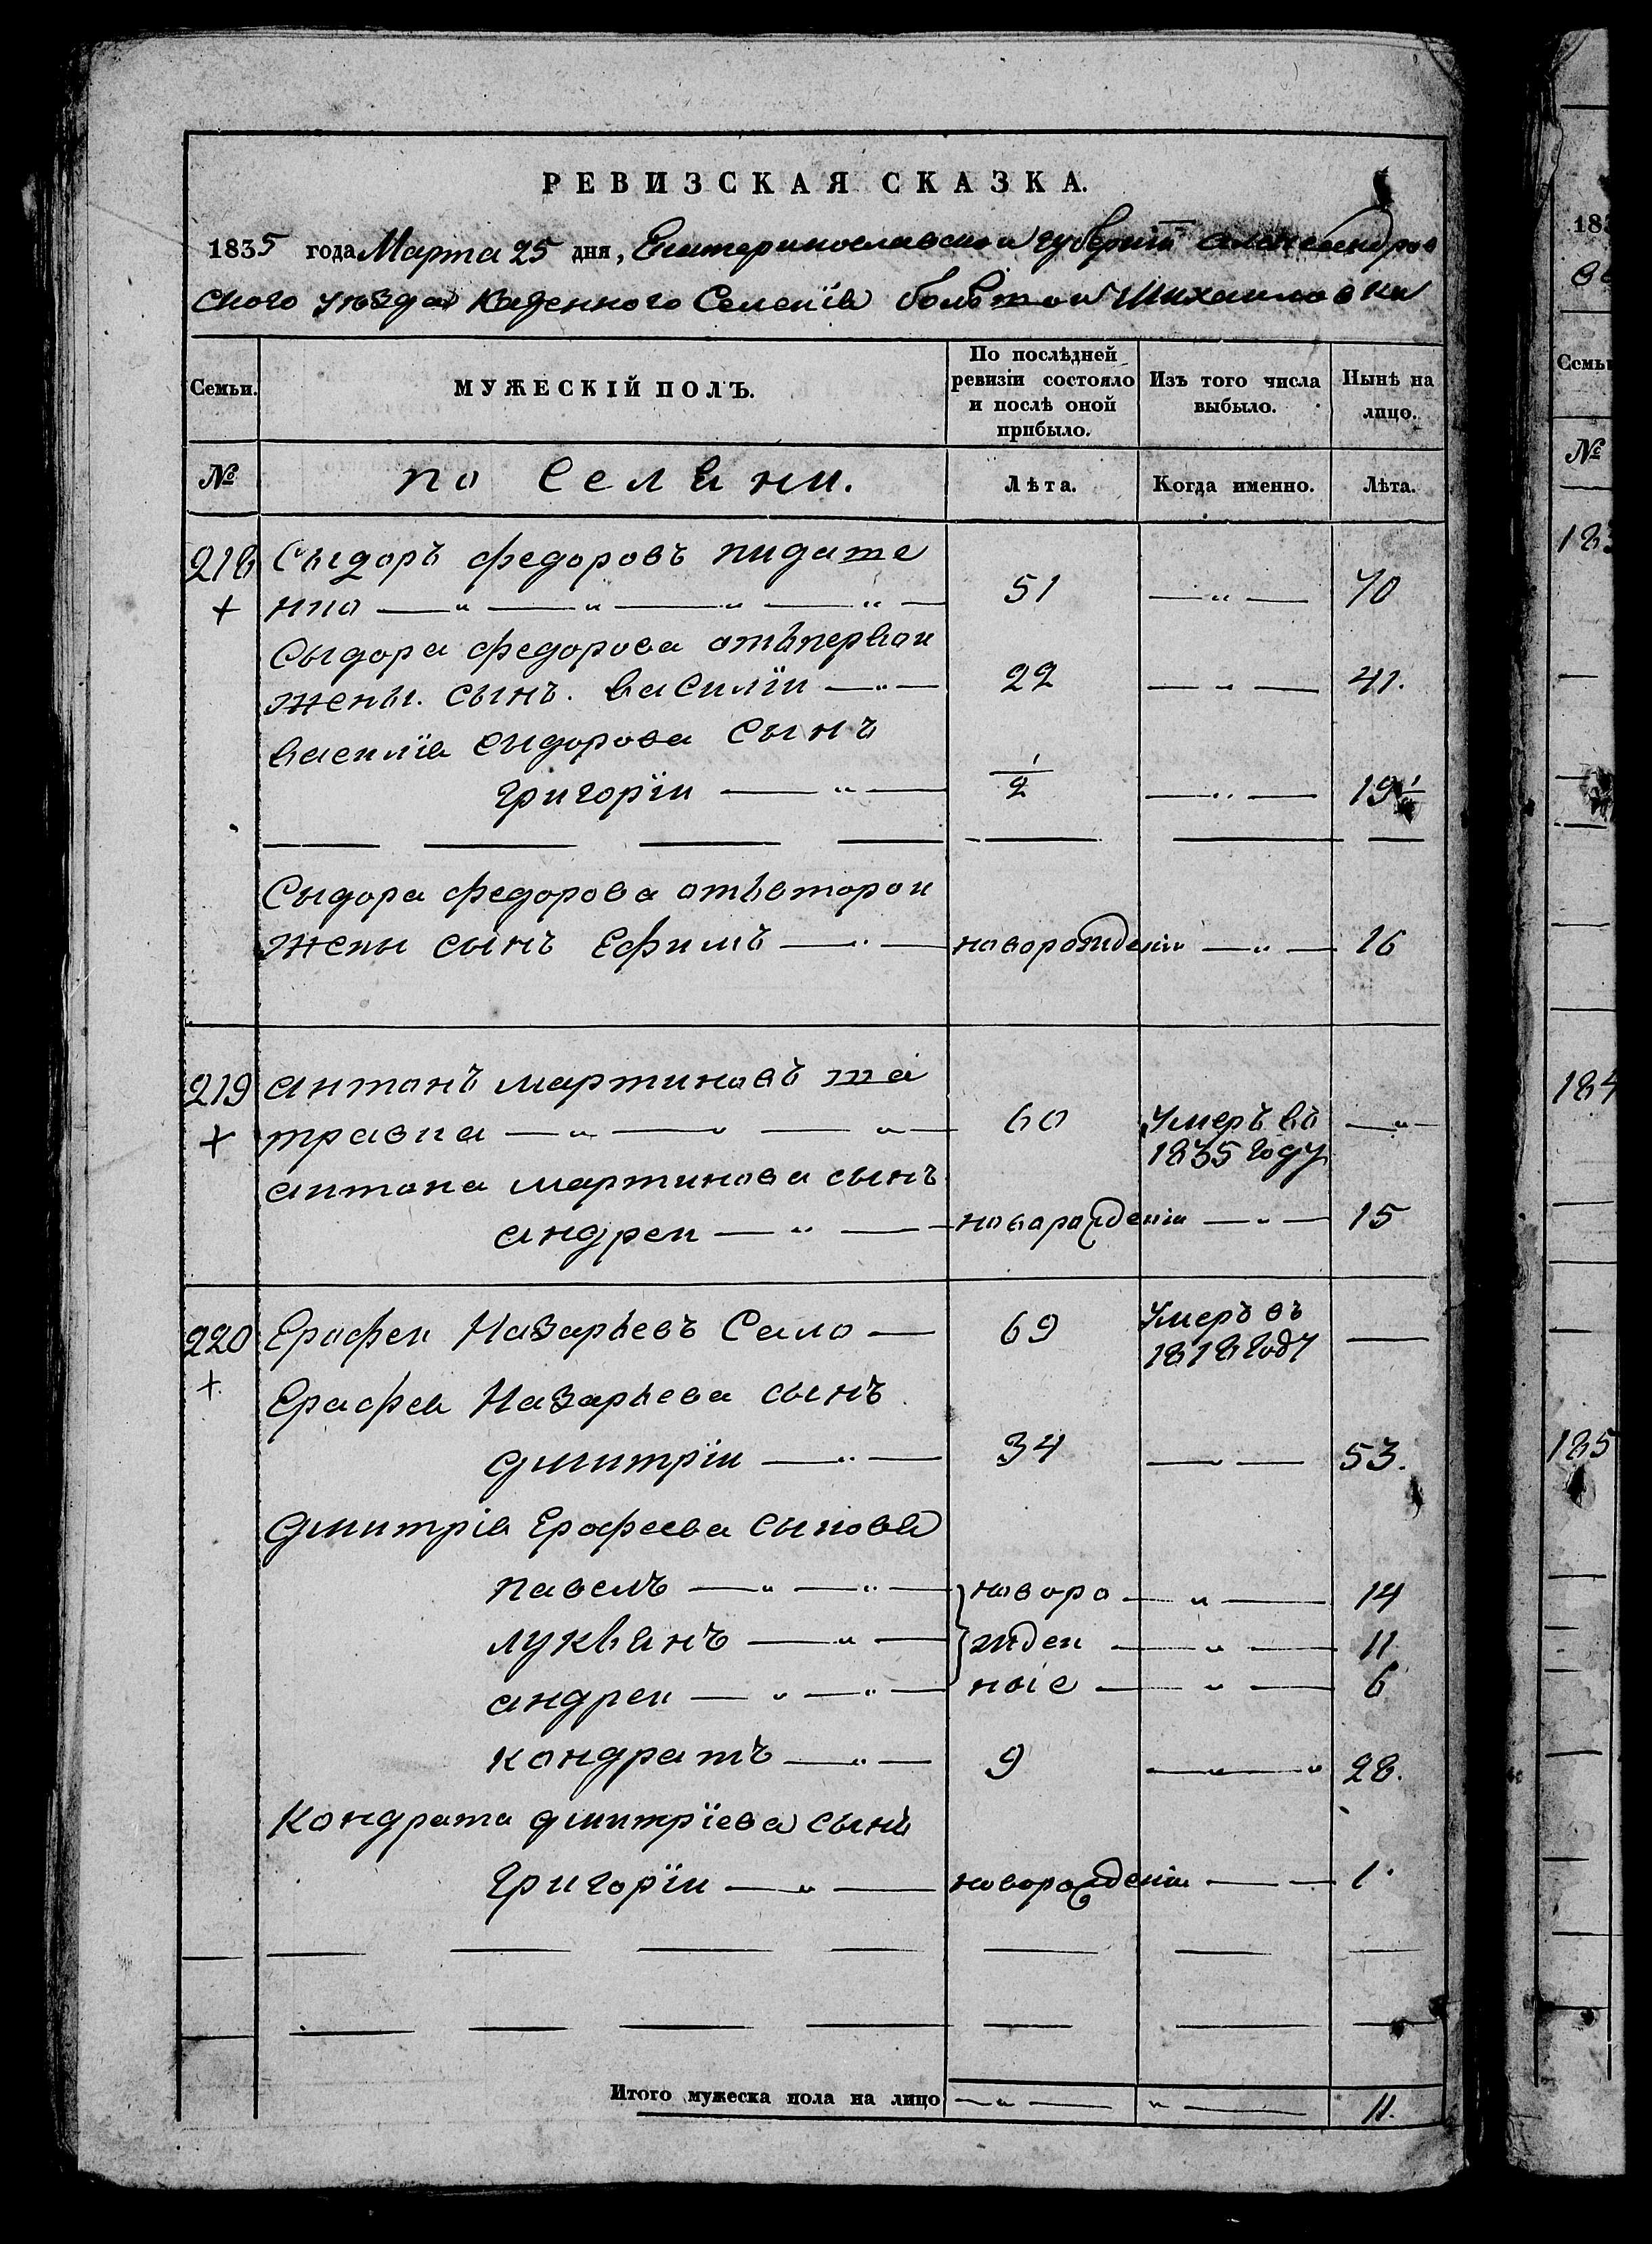 РЕВИЗСКАЯ СКАЗКА.
1835 года Марта 25 дня, Екатеринославской губерніи александров
ского уѣзда Казенного Селенія большой Михаиловки
Семьи. МУЖЕСКІЙ ПОЛЪ. По послѣдней ревизіи состояло и послѣ оной прибыло. Изъ того числа выбыло. Нынѣ на лицо.
№ Лѣта. Когда именно. Лѣта.
218 Сыдоръ федоровъ
51 — " — 70
Сыдора федорова отъпервои
жены. сынъ. василіи — " — 22 — " — 41.
василія сыдорова Сынъ
григоріи — " — 1/2 — " — 19 1/2
Сыдора федорова отъвторои
жены сынъ Ефимъ — " — новорожденіи — " — 16
219 антонъ мартиновъ
60 Умеръ въ — " —
1835 году
антона мартинова сынъ
андреи — " — новорожденіи — " — 15
220 Ерофеи Назарьевъ Сало — 69 Умеръ въ —
1818 году
Ерофея Назарьева сынъ
дмитріи — " — 34 — " — 53.
дмитрія Ерофеева сыновья
павелъ — " — " — новоро — " — 14
лукьянъ — " — жден — " — 11
андреи — " — " — ные — " — 6
кондратъ — " — 9 — " — " 28.
Кондрата дмитріева сынъ
григоріи — " — новорожденіи — — 1
Итого мужеска пола на лицо — " — " — 11.
183
Семьи
№
183
184
185